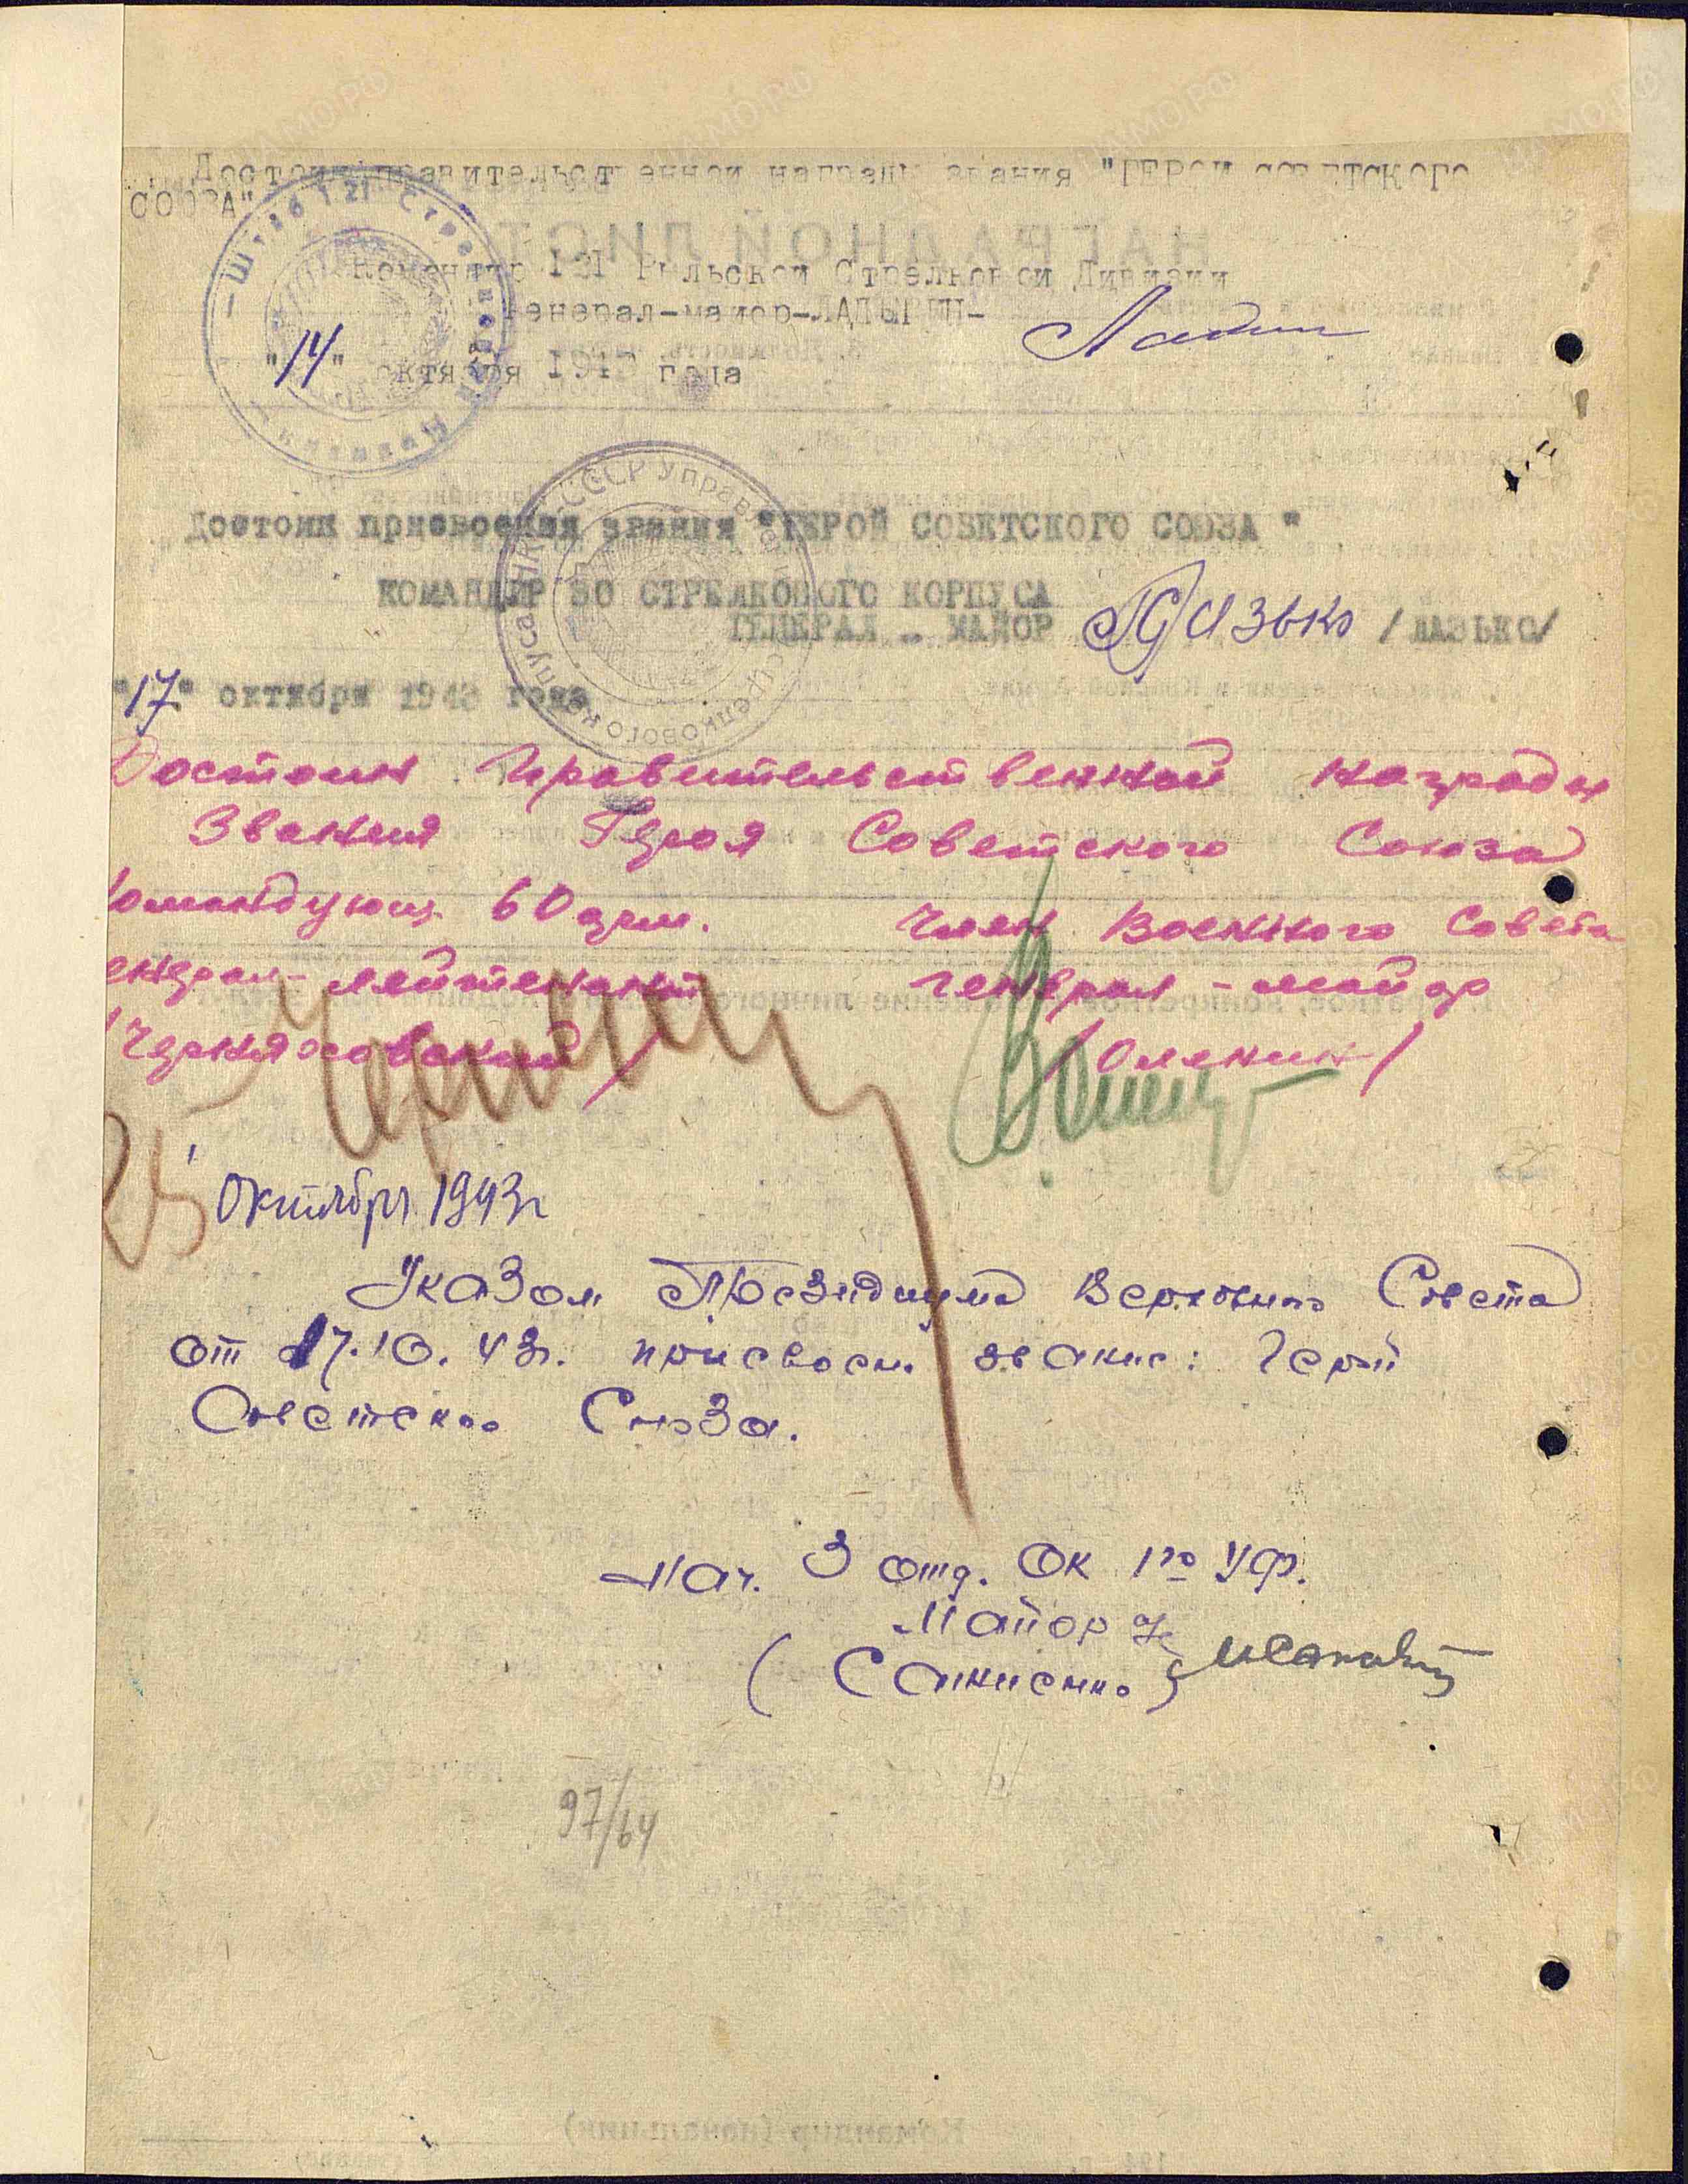 Достоин правительственной награды звания "ГЕРОЙ СОВЕТСКОГО
СОЮЗА"
Командир 121 Рыльской Стрелковой Дивизии
генерал-майор-ЛАДЫГИН-
"14" октября 1943 года
Достоин присвоения звания "ГЕРОЙ СОВЕТСКОГО СОЮЗА "
КОМАНДИР 30 СТРЕЛКОВОГО КОРПУСА
ГЕНЕРАЛ - МАЙОР /ЛАЗЬКО/
"17" октября 1943 года
Достоин Правительственной награды
Звания Героя Советского Союза
Командующ. 60 арм. Член Военного Совета
енерал-лейтенант генерал-майор
/Черняховский/ /Оленин/
25 Октября 1943г
Указом Президиума Верховного Совета
от 17.10.43г. присвоен. звание: Герой
Советского Союза.
Нач. 3 отд. ОК 1го УФ.
Майор
97/64